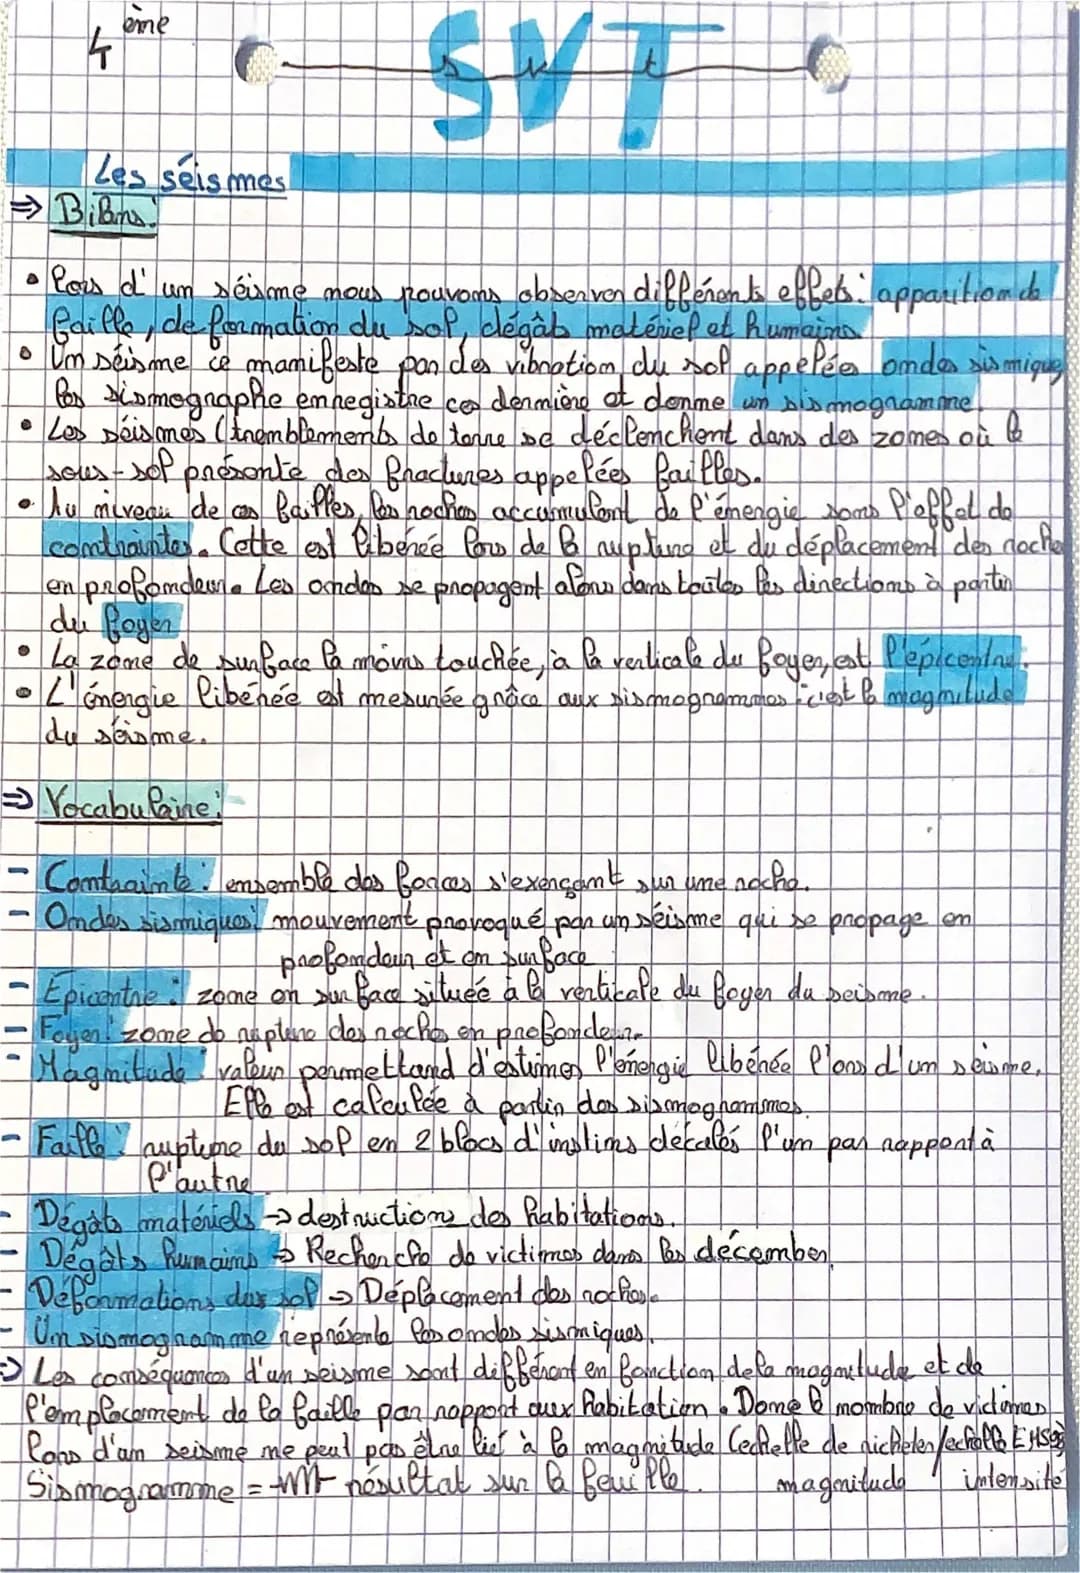 4 ème
SVT
svt
Les séismes
⇒ Bilans:
• Lors d'un séisme nous pouvons observer différents effets: apparition de
faille, de formation du sol, dégâts matériel et humains
• Un séisme ce manifeste par des vibration du sol appelées ondes sismiques
les sismographe enregistre ces dernière et donne un sismogramme.
• Les séismes (tremblements de terre se déclenchent dans des zones où le
sous-sol présente des fractures appelées failles.
• Au niveau de ces failles, les roches accumulent de l'énergie sous l'effet de
contraintes. Cette est libérée lors de la rupture et du déplacement des roches
en profondeur. Les ondes se propagent alors dans toutes les directions à partir
du foyer
• La zone de surface la moins touchée, à la verticale du foyer, est l'épicentre.
• L'énergie libérée est mesurée grâce aux sismogrammes : c'est la magnitude
du séisme.
⇒ Vocabulaire:
- Contrainte: ensemble des forces s'exerçant sur une roche.
- Ondes sismiques: mouvement provoqué par un séisme qui se propage en
profondeur et en surface
- Epicentre: zone en surface située à la verticale du foyer du seisme.
- Foyer: zone de rupture des roches en profondeur.
- Magnitude: valeur permettand d'estimer l'énergie libérée l'ors d'un séisme.
Elle est calculée à partir des sismogrammes.
- Faille: rupture du sol en 2 blocs décalés l'un par rapport à
l'autre
- Dégâts matériels → destructions des habitations.
- Dégâts humains → Recherche de victimes dans les décember.
- Déformations des sol → Déplacement des roches.
- Un sismogramme représente les ondes sismiques.
⇒ Les conséquences d'un seisme sont différent en fonction de la magnitude et de
l'emplacement de la faille par rapport aux habitation. Donc le nombre de victimes
lors d'un seisme ne peut pas être lié à la magnitude (echelle de richeter/echelle
Sismogramme = résultat sur la feuille. magnitude intensité